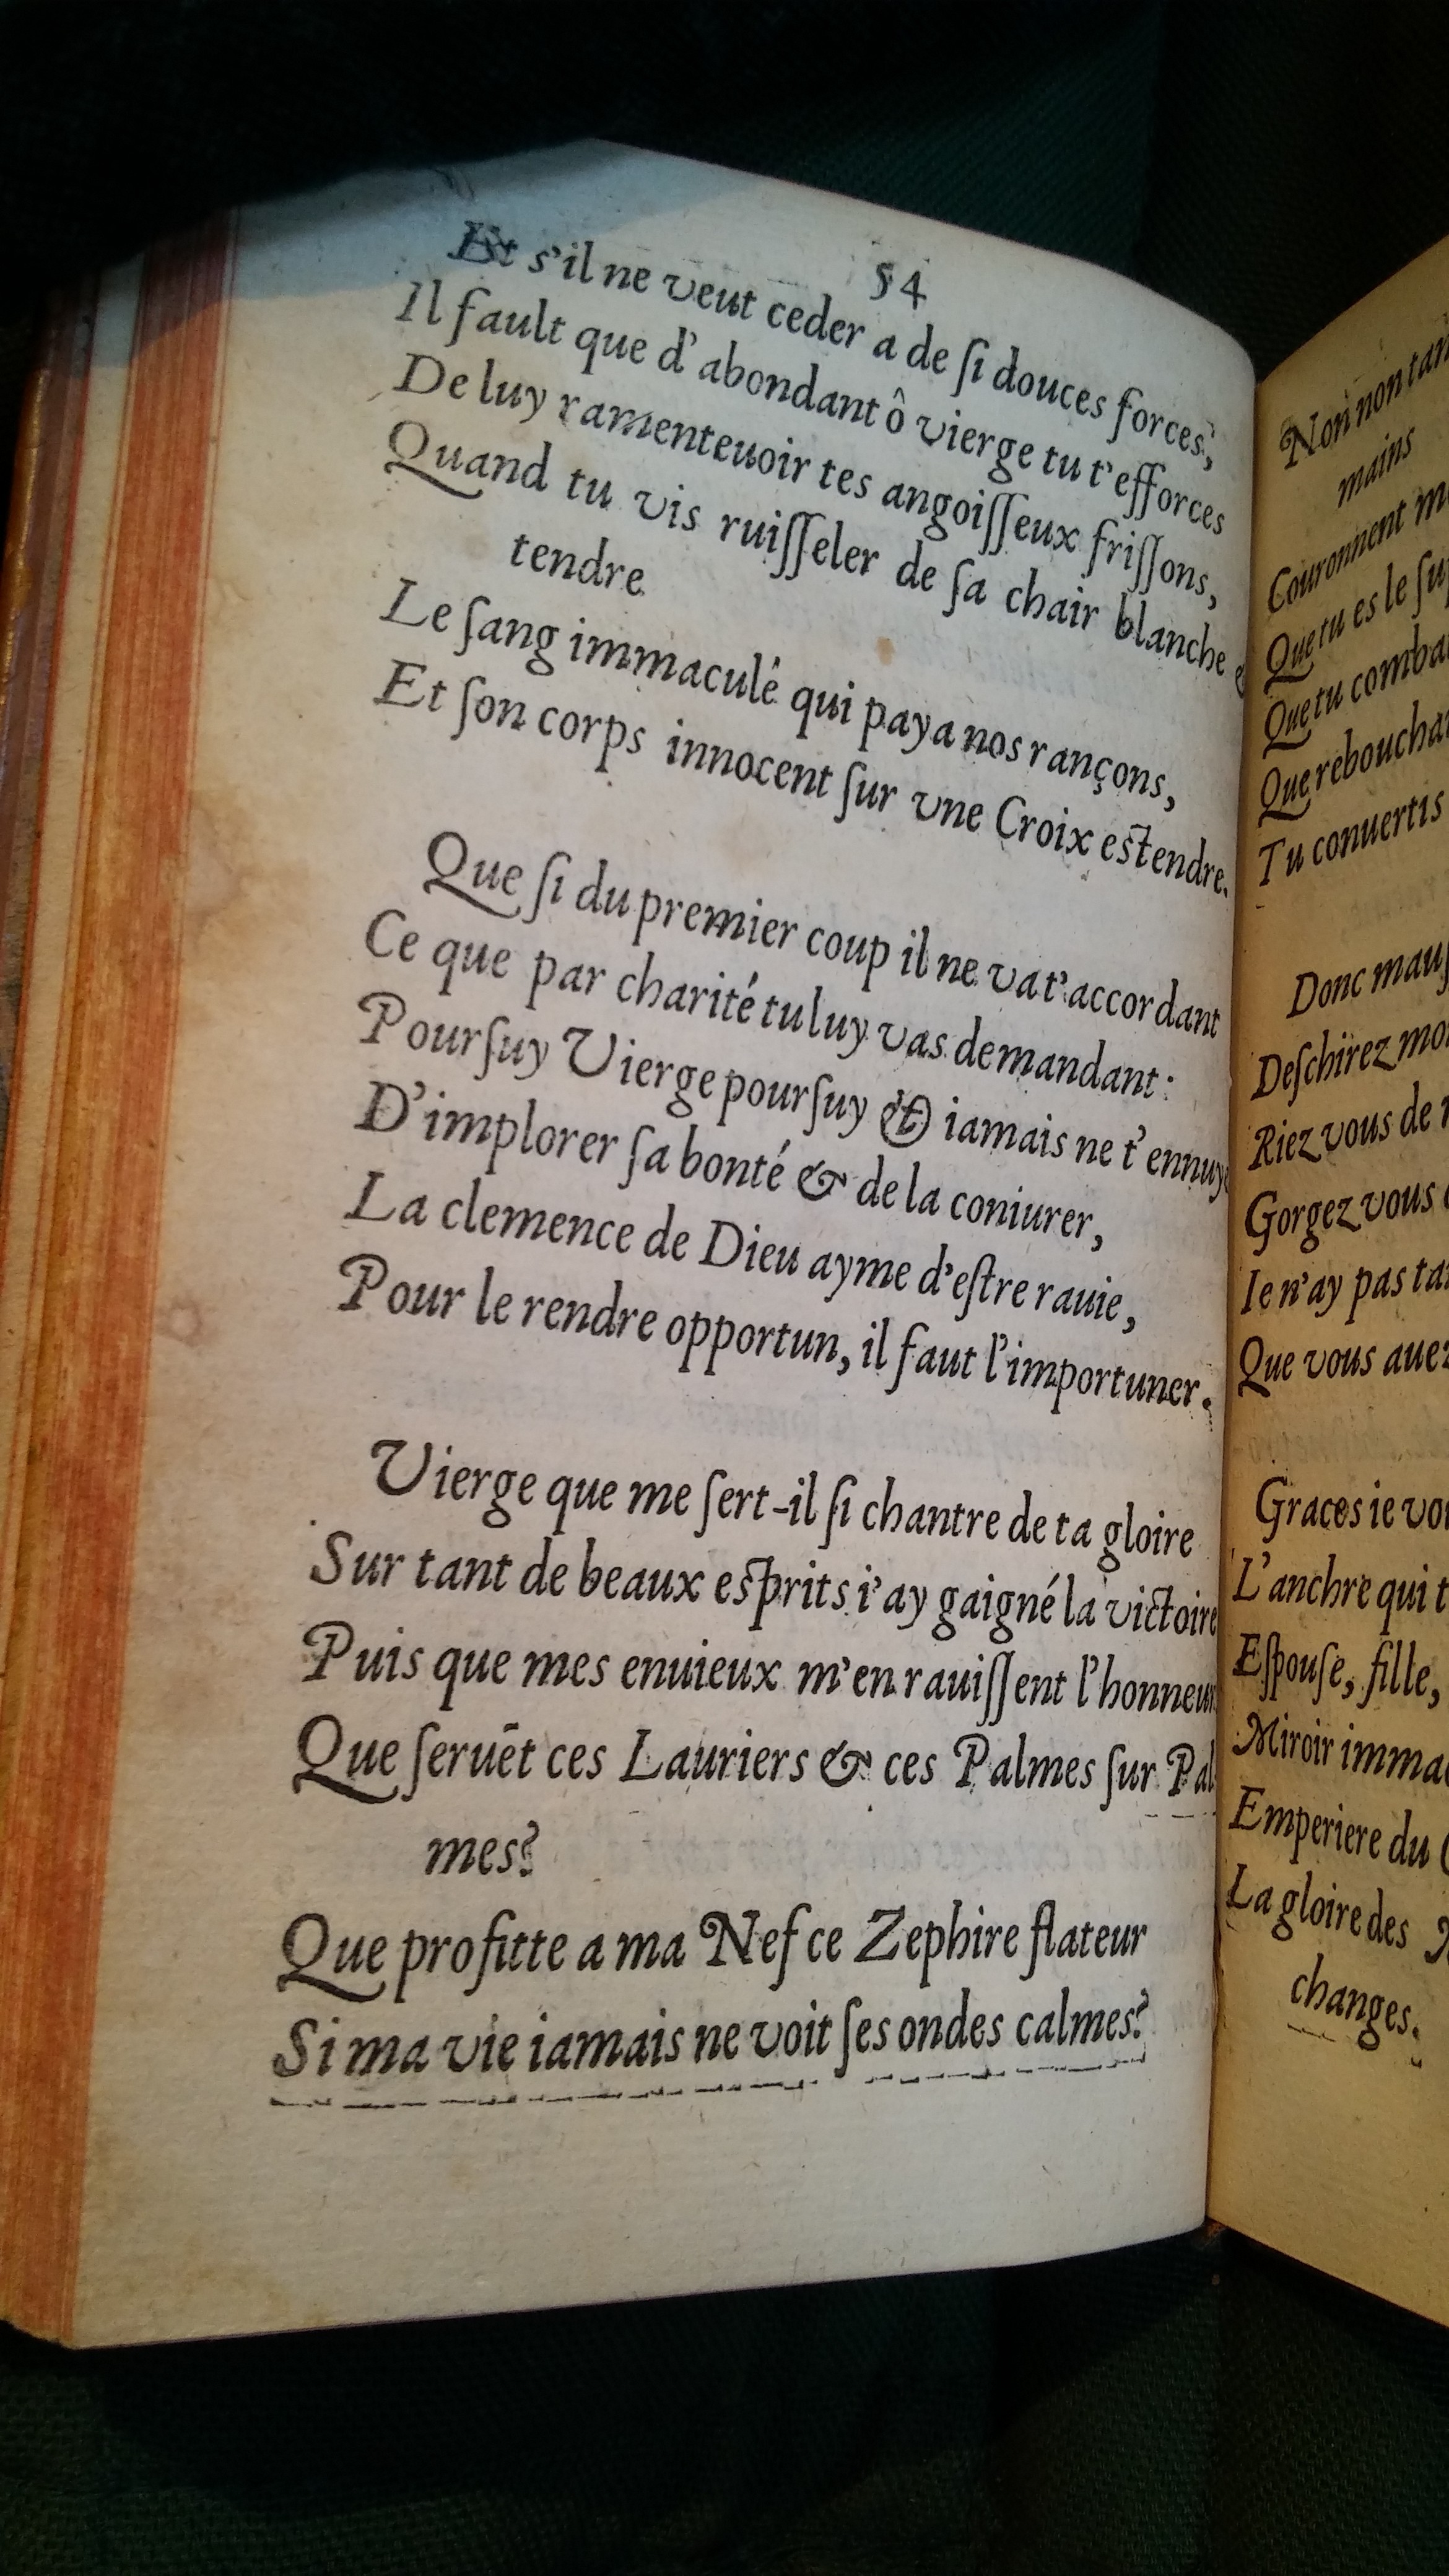 54
Et s'il ne veut ceder a de ſi douces forces,
Il fault que d'abondant ô vierge tu t'efforces
De luy ramenteuoir tes angoiſſeux friſſons,
Quand tu vis ruiſſeler de ſa chair blanche
tendre
Le ſang immaculé qui paya nos rançons,
Et ſon corps innocent ſur vne Croix eſtendre.
Que ſi du premier coup il ne va t'accordant
Ce que par charité tu luy vas demandant:
Pourſuy Vierge pourſuy & iamais ne t'ennuye
D'implorer ſa bonté & de la coniurer,
La clemence de Dieu ayme d'eſtre rauie,
Pour le rendre opportun, il faut l'importuner.
Vierge que me ſert-il ſi chantre de ta gloire
Sur tant de beaux eſprits i'ay gaigné la victoire
Puis que mes enuieux m'en rauiſſent l'honneur
Que ſeruēt ces Lauriers & ces Palmes ſur Pal
mes?
Que profitte a ma Nef ce Zephire flateur
Si ma vie iamais ne voit ſes ondes calmes?
Non non tan
mains
Couronnent m
Que tu es le ſu
Que tu comba
Que reboucha
Tu conuertis
Donc mau
Deſchirez mo
Riez vous de
Gorgez vous
Ie n'ay pas ta
Que vous aue
Graces ie vo
L'anchre qui t
Eſpouſe, fille,
Miroir imma
Emperiere du
La gloire des
changes.